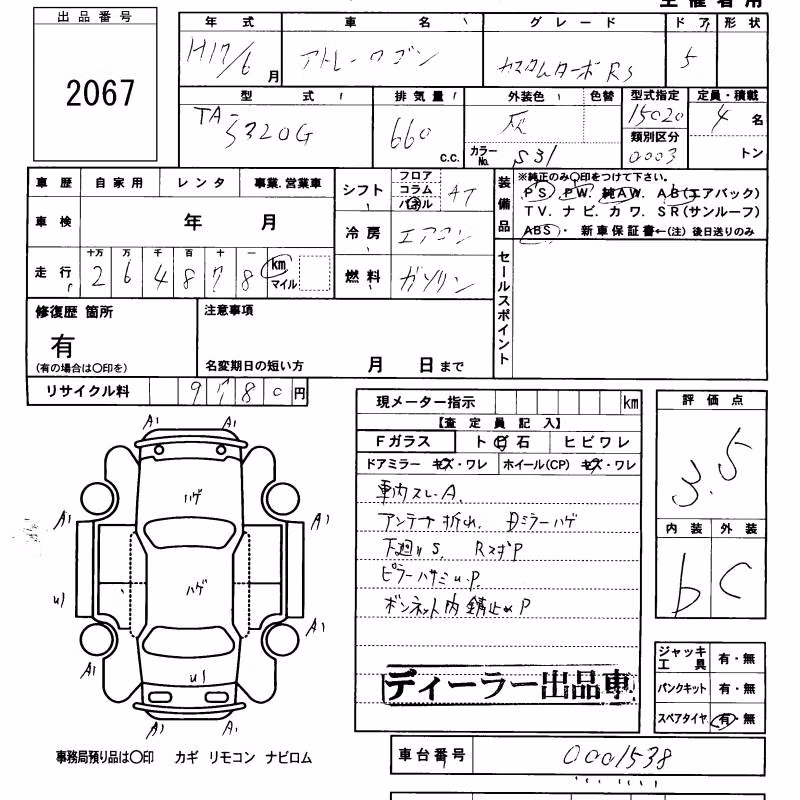 出品番号
2067
年式 車名 グレード ドア 形状
H17/6月 アトレーワゴン カスタムターボRS 5
型式 排気量 外装色 色替 型式指定 定員・積載
TA-S320G 660 c.c. 灰 15020 4名
カラーNo. S31 類別区分 0003 トン
車歴 自家用 レンタ 事業.営業車
シフト フロア コラム パネル AT
装備品
※純正のみ〇印をつけて下さい。
PS. PW. 純AW. AB(エアバック)
TV. ナビ. カワ. SR(サンルーフ)
ABS・ 新車保証書←(注) 後日送りのみ
車検 年 月
冷房 エアコン
走行 十万 万 千 百 十 一
264878 km マイル
燃料 ガソリン
セールスポイント
修復歴 箇所
有
(有の場合は〇印を)
注意事項
名変期日の短い方 月 日まで
リサイクル料 9780円
現メーター指示 km
【査定員記入】
Fガラス ト石 ヒビワレ
ドアミラー キズ・ワレ ホイール(CP) キズ・ワレ
車内スレA.
アンテナ折れ. Dミラーハゲ
下廻りS. P
ピラーハサミ P.
ボンネット内錆止 P
ディーラー出品車
評価点
3.5
内装 外装
b C
ジャッキ工具 有・無
パンクキット 有・無
スペアタイヤ 有・無
A1 A1
ハゲ
A1 A1
ハゲ
U1
A1 A1
U1
A1 A1
事務局預り品は〇印 カギ リモコン ナビロム
車台番号 0001538